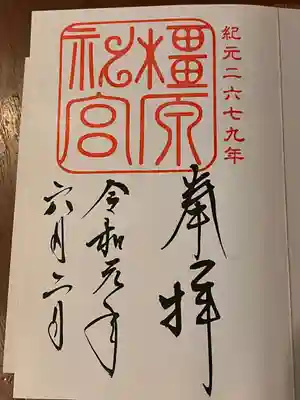 紀元二六七九年
橿原
神宮
奉拝
令和元年
六月二日